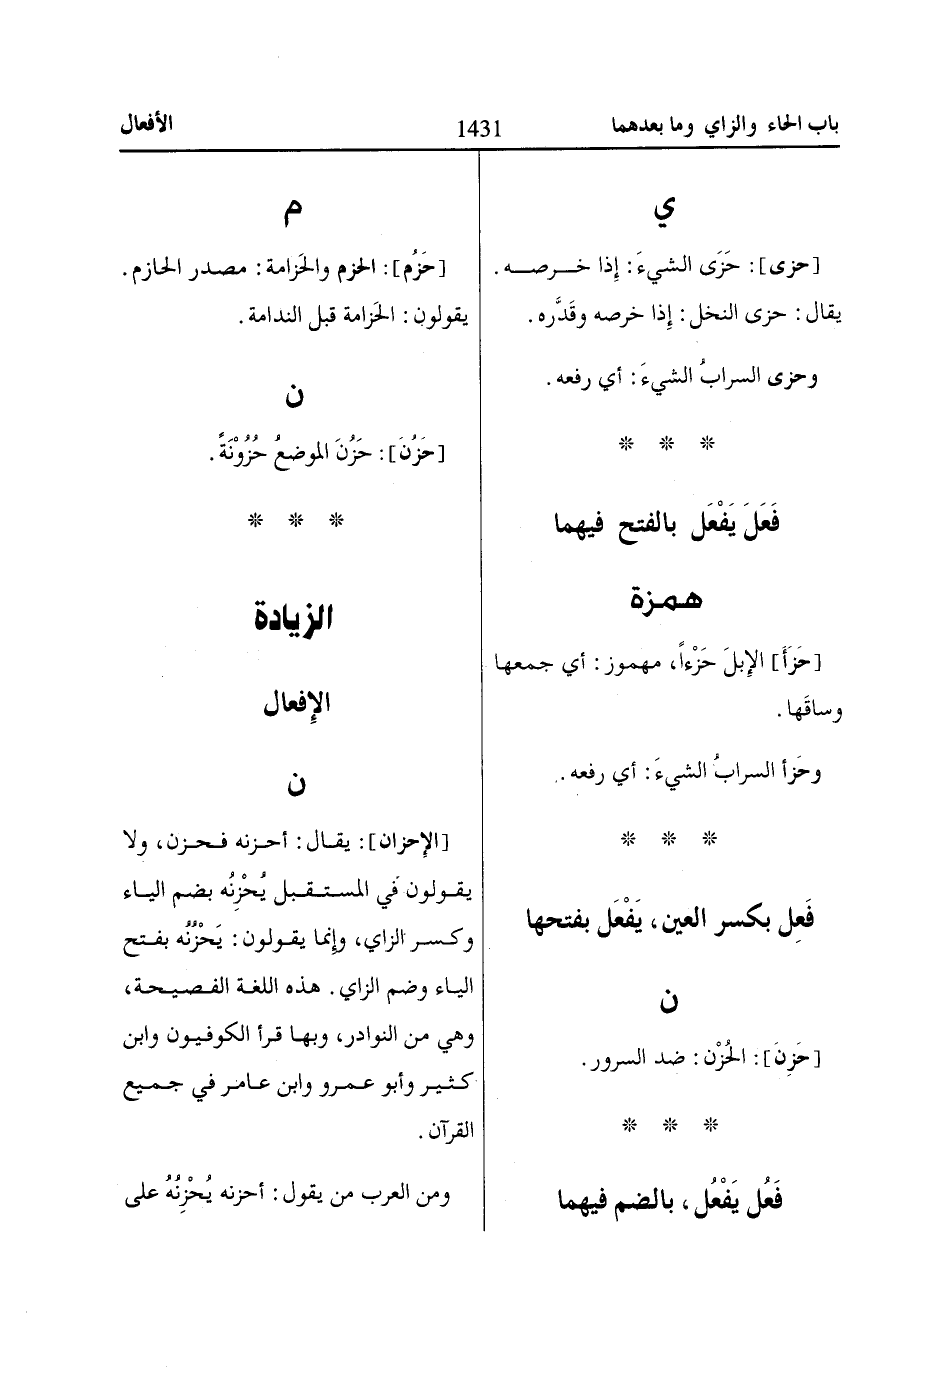 باب الحاء والزاي وما بعدهما
1431
الأفعال
ي
[حزى]: حَزَى الشيءَ: إِذا خرصه.
يقال: حزى النخل: إِذا خرصه وقَدَّره.
وحزى السرابُ الشيءَ: أي رفعه.
* * *
فَعَلَ يَفْعَل بالفتح فيهما
همزة
[حَزَأَ] الإِبلَ حَزْءاً، مهموز: أي جمعها
وساقَها.
وحَزأ السرابُ الشيءَ: أي رفعه.
* * *
فَعِل بكسر العين، يَفْعَل بفتحها
ن
[حَزِنَ]: الحُزْن: ضد السرور.
* * *
فَعُل يَفْعُل، بالضم فيهما
م
[حَزُم]: الحزم والحَزامة: مصدر الحازم.
يقولون: الحَزامة قبل الندامة.
ن
[حَزُنَ]: حَزُنَ الموضعُ حُزُوْنَةً.
* * *
الزيادة
الإِفعال
ن
[الإِحزان]: يقال: أحزنه فحزن، ولا
يقولون في المستقبل يُحْزِنُه بضم الياء
وكسر الزاي، وإِنما يقولون: يَحْزُنُه بفتح
الياء وضم الزاي. هذه اللغة الفصيحة،
وهي من النوادر، وبها قرأ الكوفيون وابن
كثير وأبو عمرو وابن عامر في جميع
القرآن.
ومن العرب من يقول: أحزنه يُحْزِنُهُ على